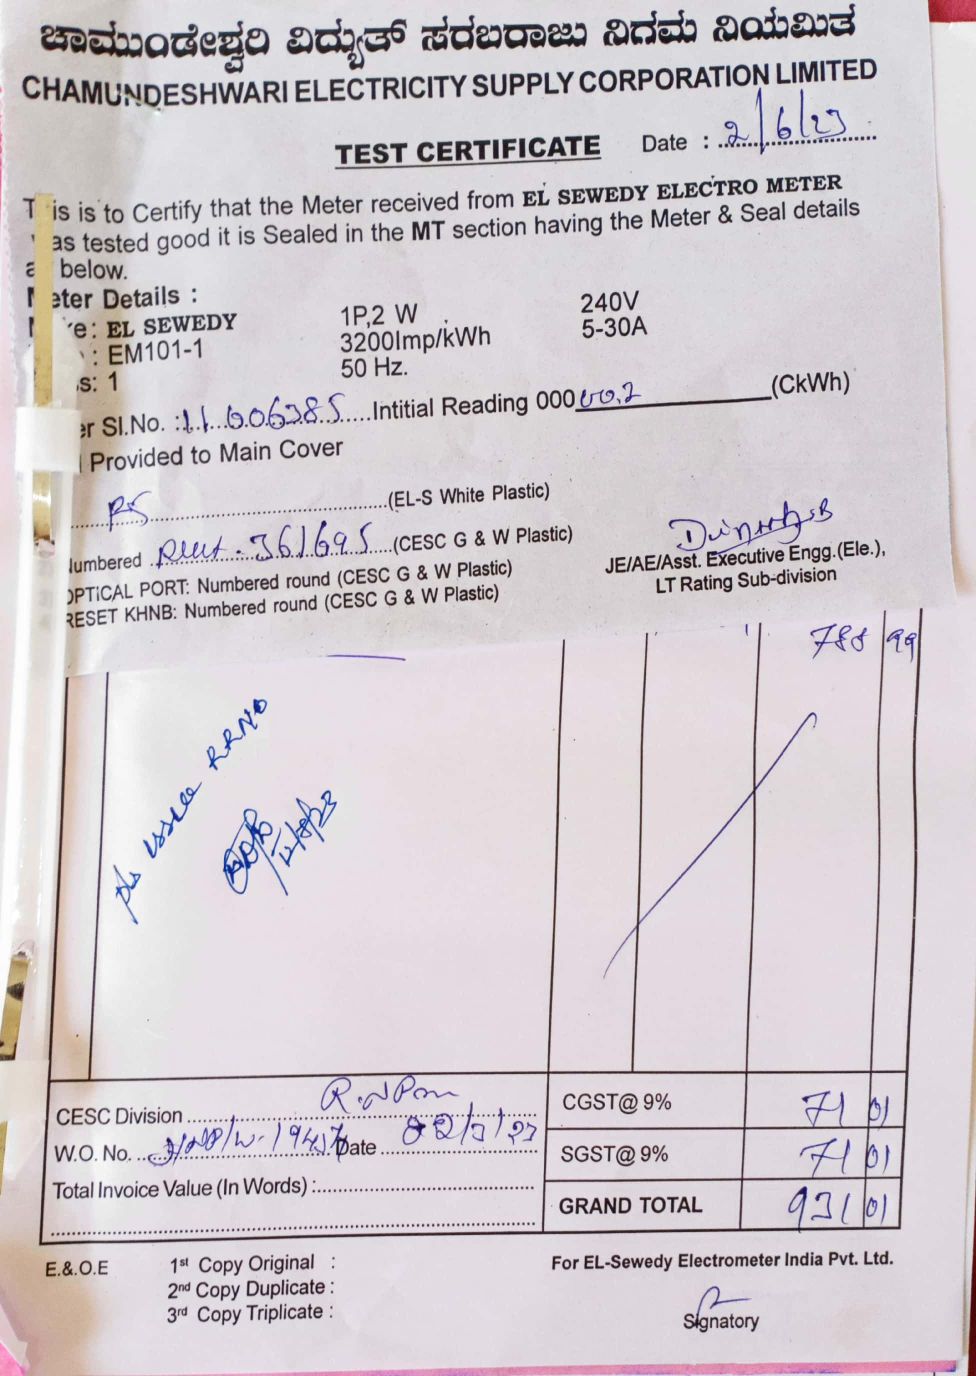 ಚಾಮುಂಡೇಶ್ವರಿ ವಿದ್ಯುತ್ ಸರಬರಾಜು ನಿಗಮ ನಿಯಮಿತ
CHAMUNDESHWARI ELECTRICITY SUPPLY CORPORATION LIMITED
TEST CERTIFICATE Date : 2/6/23
is is to Certify that the Meter received from EL SEWEDY ELECTRO METER
as tested good it is Sealed in the MT section having the Meter & Seal details
below.
eter Details :
e: EL SEWEDY 1P,2 W 240V
: EM101-1 3200Imp/kWh 5-30A
s: 1 50 Hz.
er Sl.No. : 11606385 Intitial Reading 00000.2 (CkWh)
Provided to Main Cover
(EL-S White Plastic)
Numbered 361695 (CESC G & W Plastic)
OPTICAL PORT: Numbered round (CESC G & W Plastic)
RESET KHNB: Numbered round (CESC G & W Plastic)
JE/AE/Asst. Executive Engg.(Ele.),
LT Rating Sub-division
788 99
RRNo
12/8/23
CESC Division
W.O. No. Date
Total Invoice Value (In Words) :
CGST@ 9% 71 01
SGST@ 9% 71 01
GRAND TOTAL 931 01
E.&.O.E 1st Copy Original :
2nd Copy Duplicate :
3rd Copy Triplicate :
For EL-Sewedy Electrometer India Pvt. Ltd.
Signatory